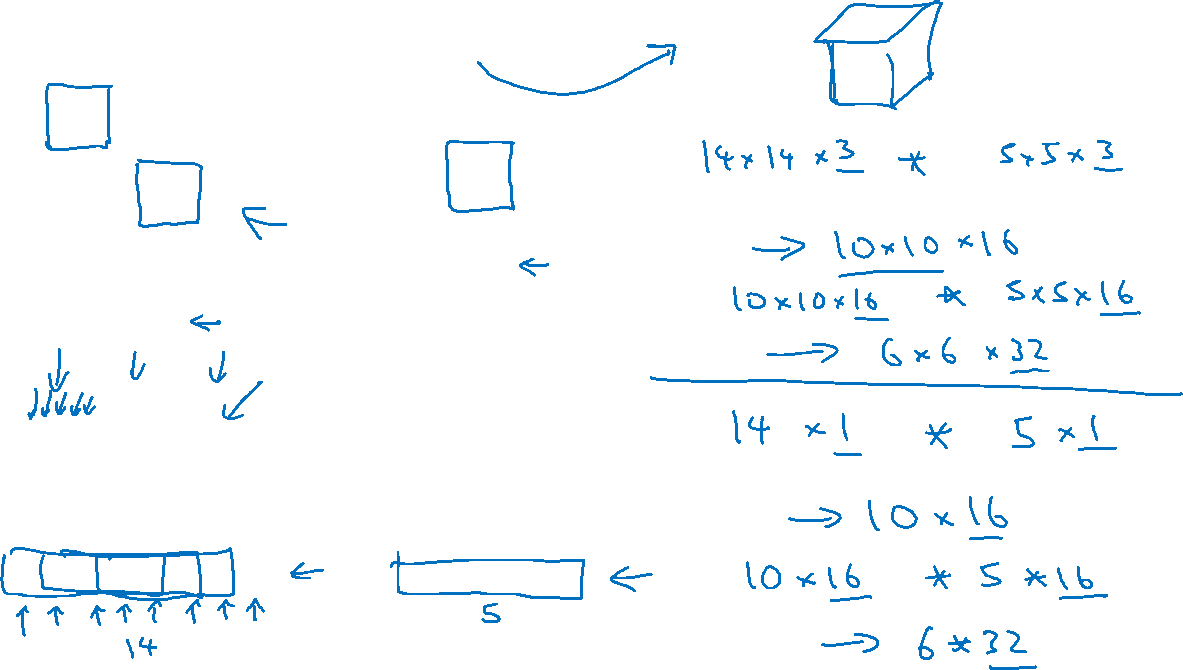 14 × 14 × 3 * 5 × 5 × 3
→ 10 × 10 × 16
10 × 10 × 16 * 5 × 5 × 16
→ 6 × 6 × 32
14 × 1 * 5 × 1
→ 10 × 16
10 × 16 * 5 * 16
→ 6 * 32
14
5